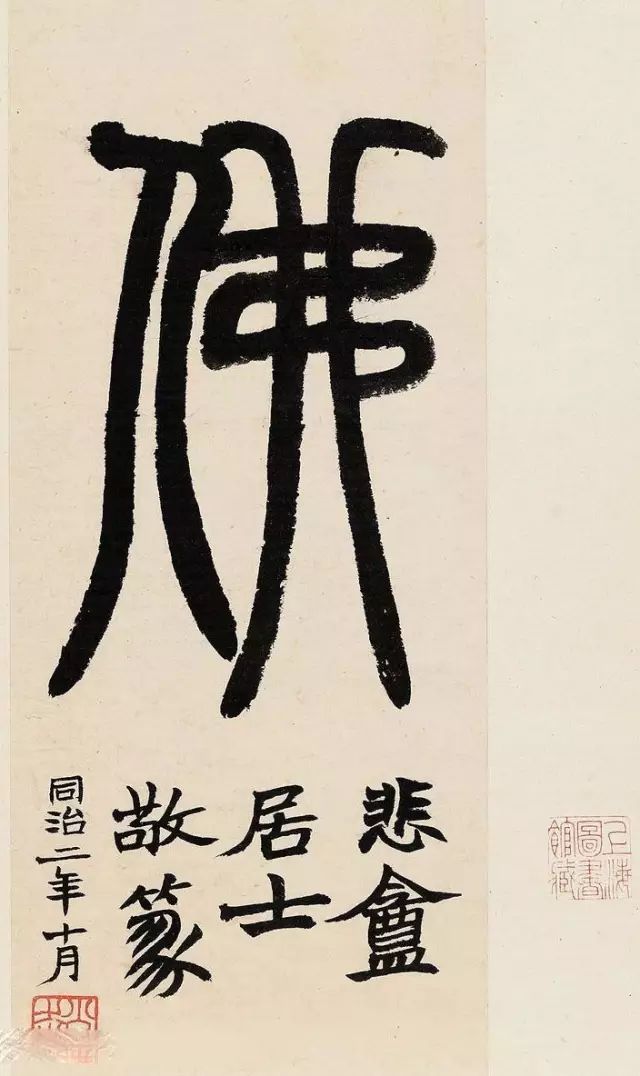 佛
悲盦
居士
敬篆
同治二年十月
上海
圖書
館藏